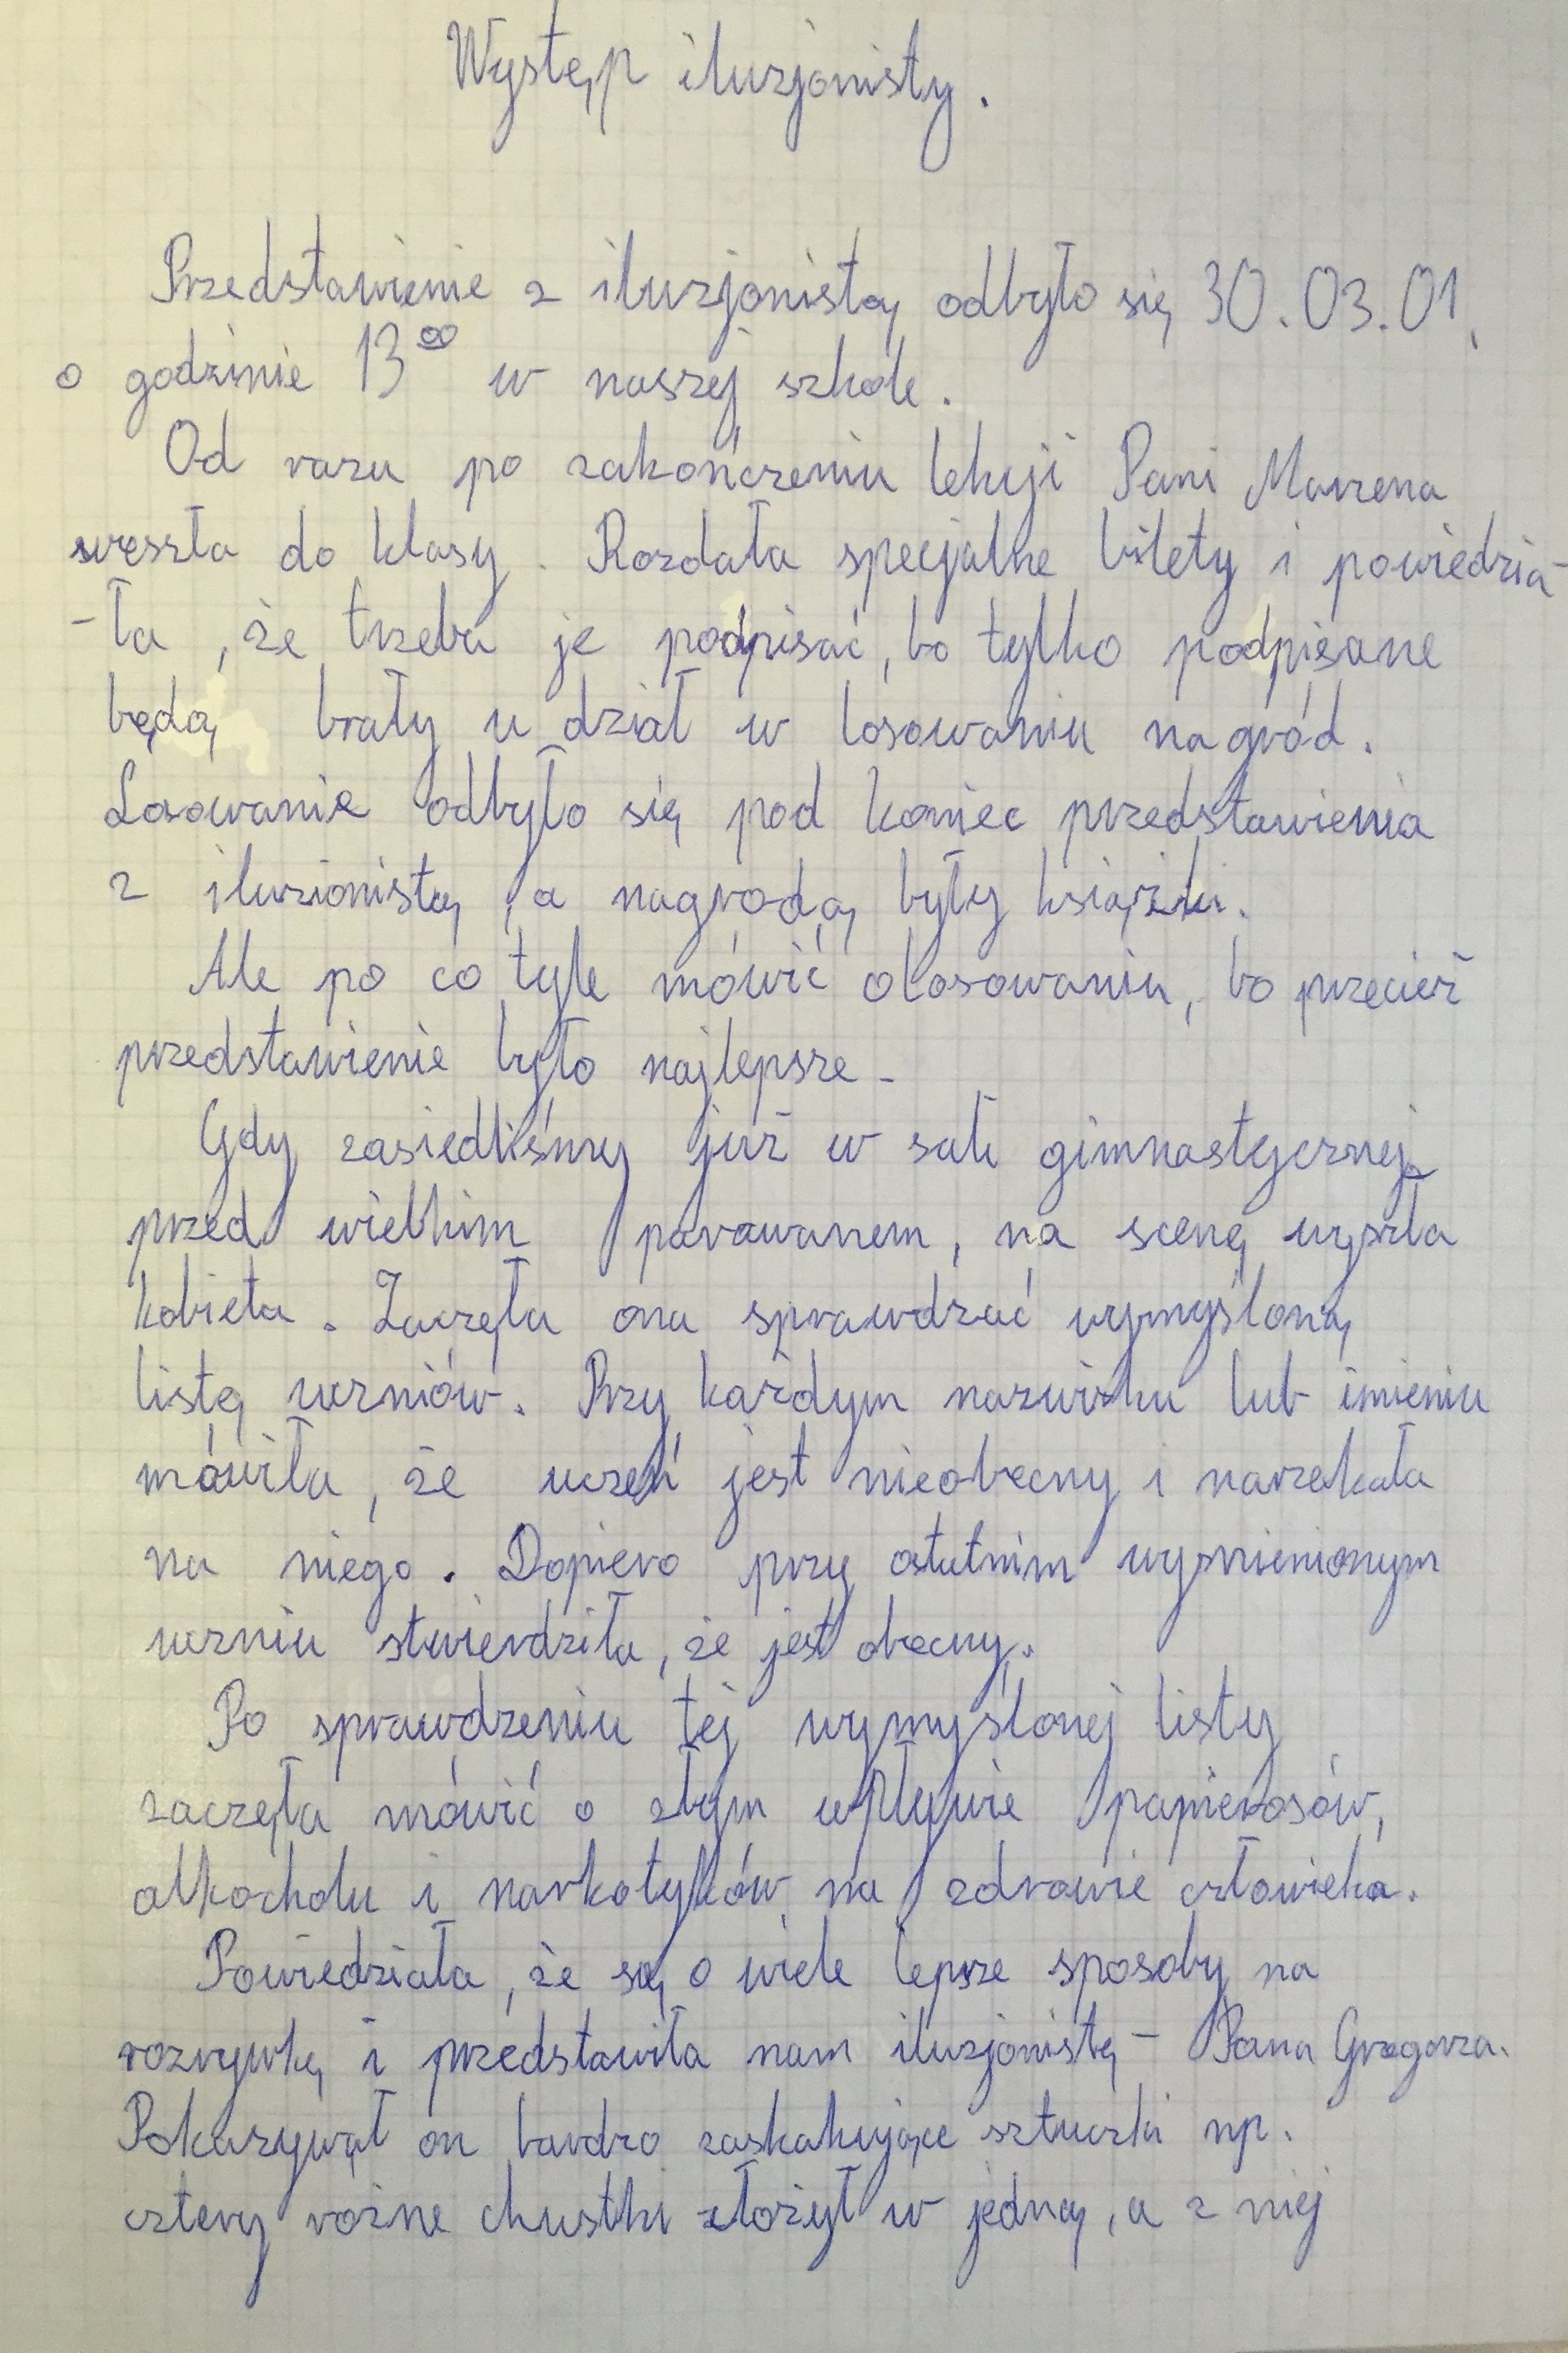 Występ iluzjonisty.
Przedstawienie z iluzjonistą odbyło się 30.03.01.
o godzinie 13⁰⁰ w naszej szkole.
Od razu po zakończeniu lekcji Pani Marzena
weszła do klasy. Rozdała specjalne bilety i powiedzia-
-ła, że trzeba je podpisać, bo tylko podpisane
będą brały u dział w losowaniu nagród.
Losowanie odbyło się pod koniec przedstawienia
z iluzionistą, a nagrodą były książki.
Ale po co tyle mówić o losowaniu, bo przecież
przedstawienie było najlepsze.
Gdy zasiedliśmy już w sali gimnastycznej
przed wielkim parawanem, na scenę wyszła
kobieta. Zaczęła ona sprawdzać wymyśloną
listę uczniów. Przy każdym nazwisku lub imieniu
mówiła, że uczeń jest nieobecny i narzekała
na niego. Dopiero przy ostatnim wymienionym
uczniu stwierdziła, że jest obecny.
Po sprawdzeniu tej wymyślonej listy
zaczęła mówić o złym wpływie papierosów,
alkocholu i narkotyków na zdrowie człowieka.
Powiedziała, że są o wiele lepsze sposoby na
rozrywkę i przedstawiła nam iluzjonistę - Pana Grzegorza.
Pokazywał on bardzo zaskakujące sztuczki np.
cztery rożne chustki złożył w jedną, a z niej